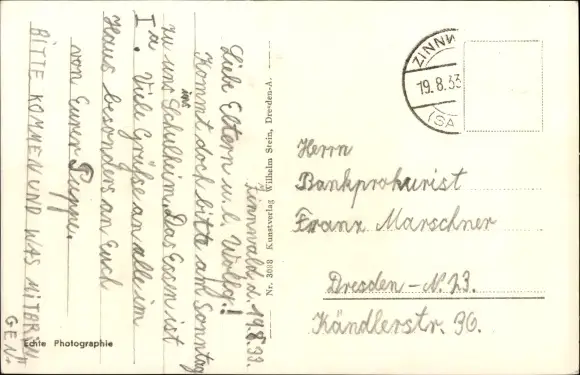 Zinnwald d. 19.8.33.
Liebe Eltern u. l. Wolfg.!
Kommt doch bitte am Sonntag
zu uns ins Schulheim. Das Essen ist
Ia. Viele Grüße an alle im
Haus besonders an Euch
von Eurer Puppe.
BITTE KOMMEN UND WAS MITBRIN
GEN.
Echte Photographie
Nr. 3088 Kunstverlag Wilhelm Stein, Dresden-A.
ZINNW
19.8.33
(SA
Herrn
Bankprokurist
Franz Marschner
Dresden - N. 23.
Kändlerstr. 30.